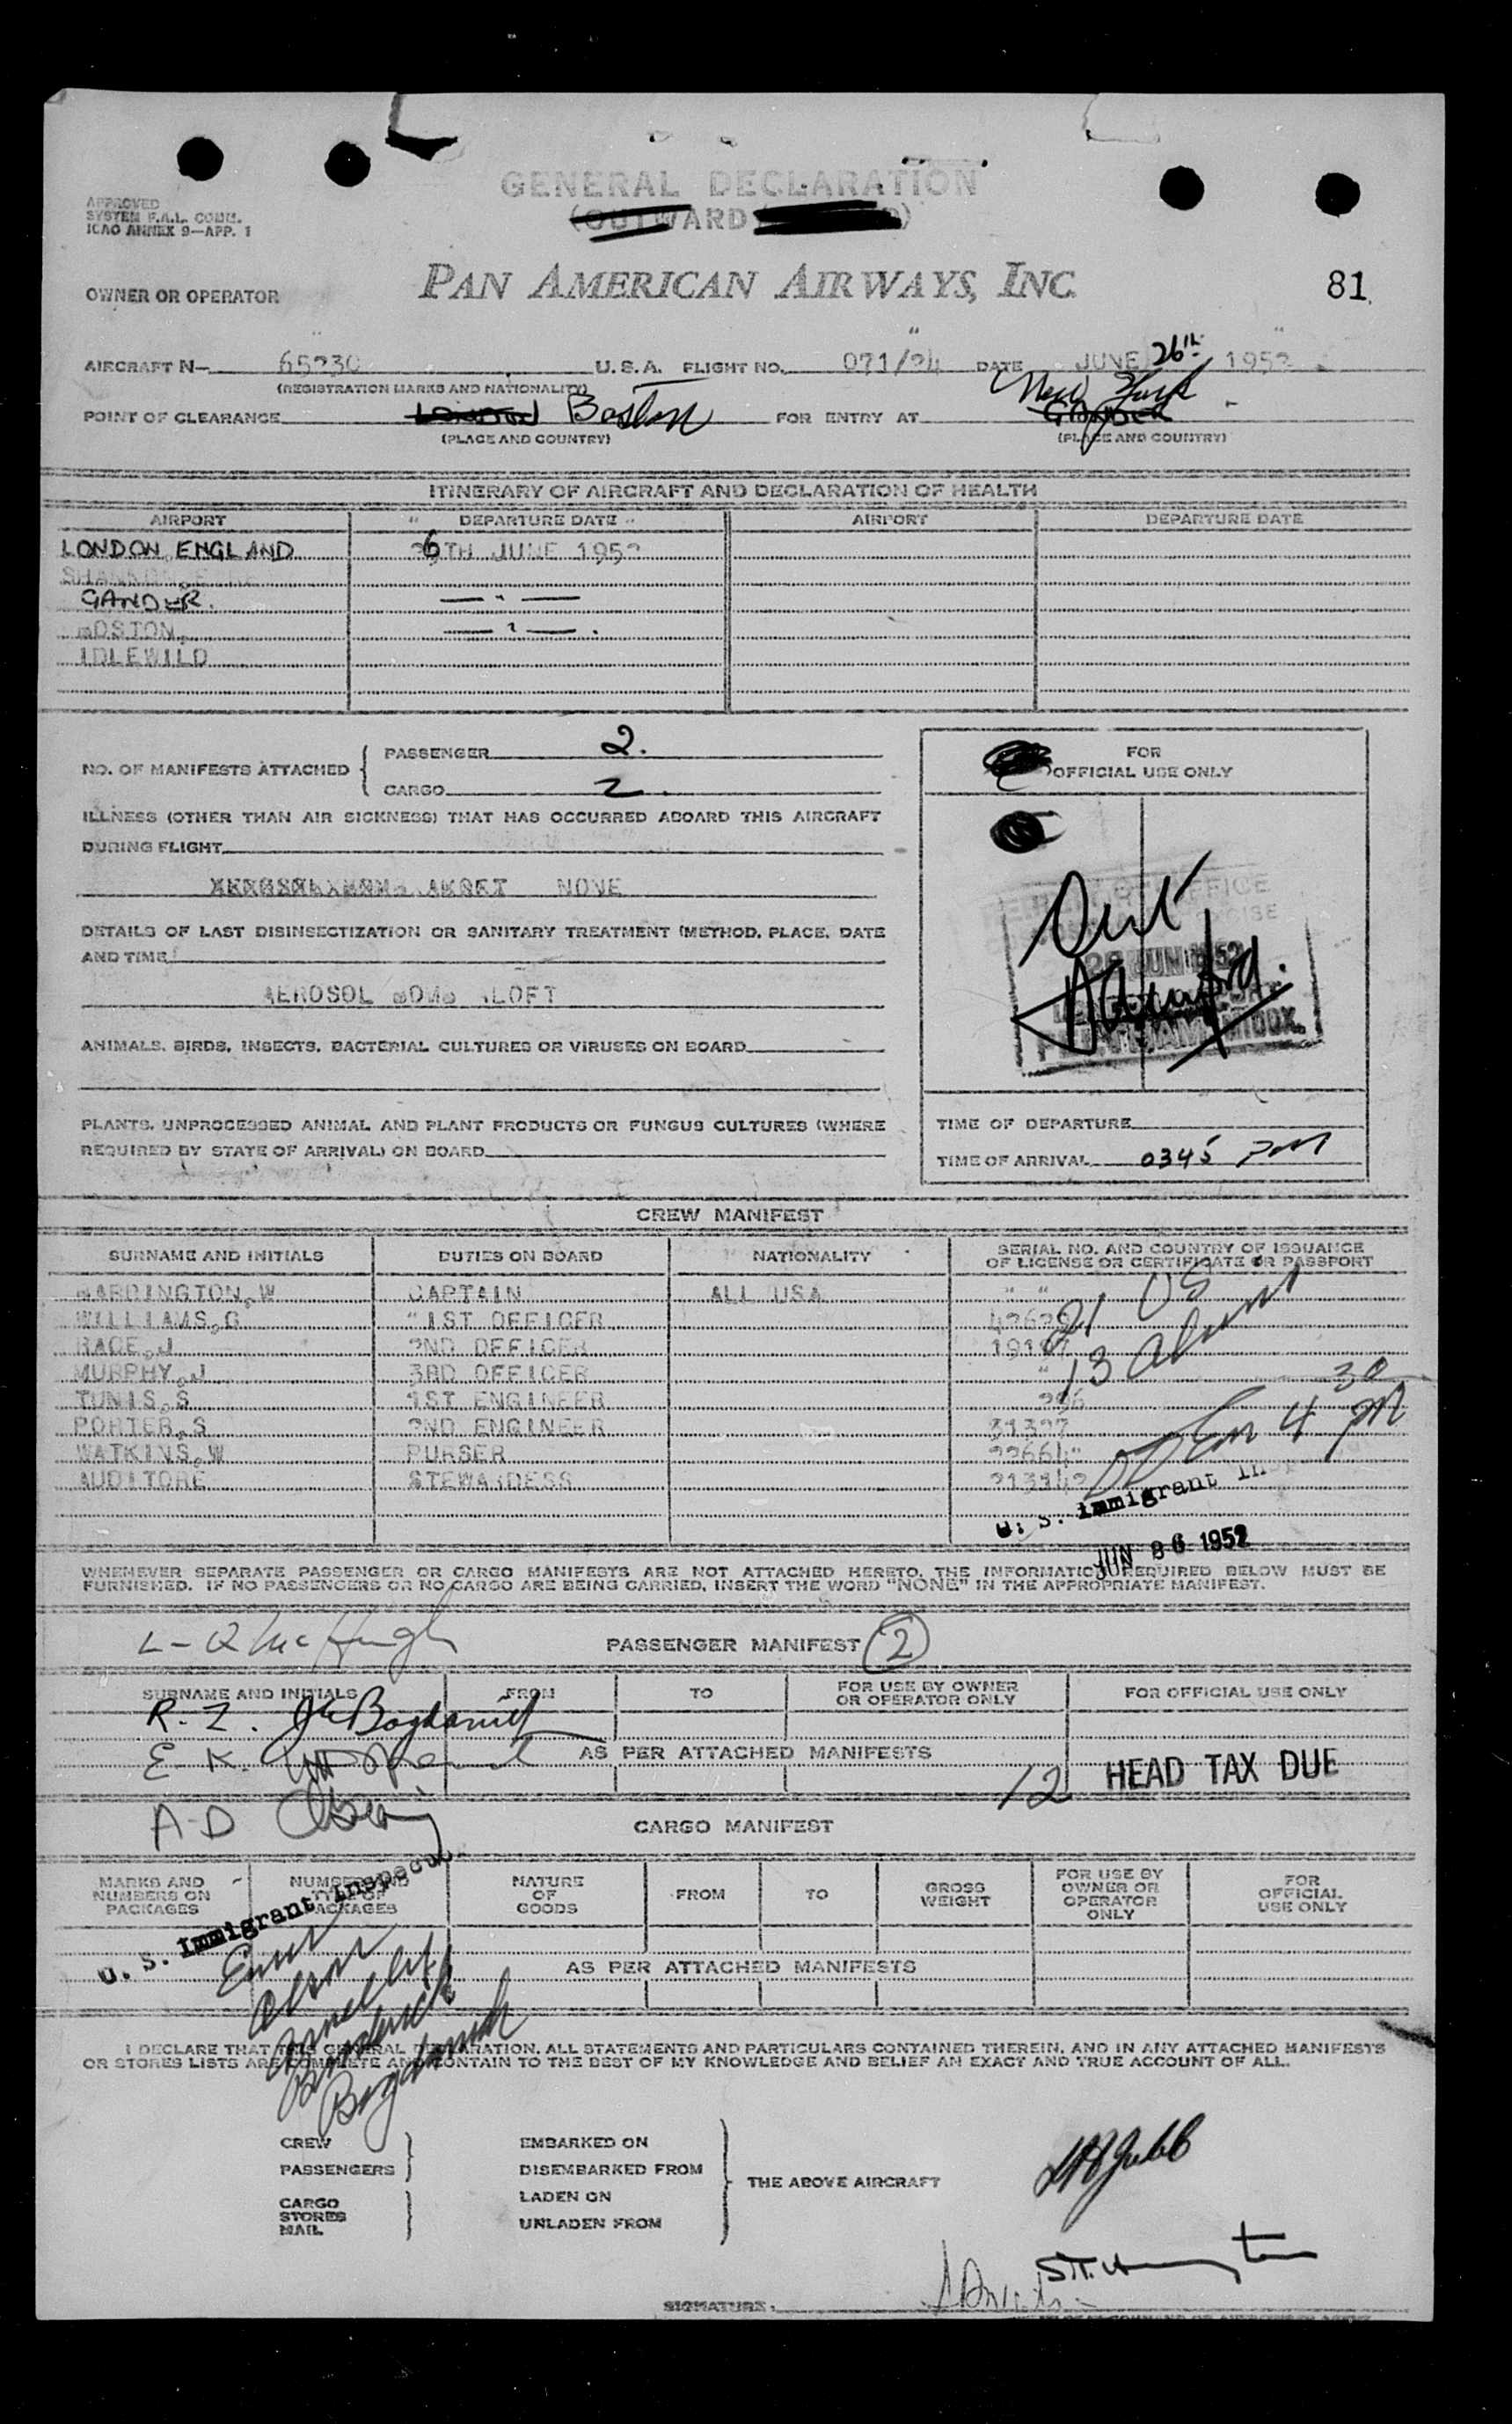 GENERAL DECLARATION
(OUTWARD
APPROVED
SYSTEM F.A.L. COMM.
ICAO ANNEX 9—APP. 1
OWNER OR OPERATOR
PAN AMERICAN AIRWAYS, INC.
81
AIRCRAFT N- 65230 U.S.A. FLIGHT NO. 071/24 DATE JUNE 26th 1952
(REGISTRATION MARKS AND NATIONALITY)
POINT OF CLEARANCE LONDON Boston FOR ENTRY AT New York GANDER
(PLACE AND COUNTRY) (PLACE AND COUNTRY)
ITINERARY OF AIRCRAFT AND DECLARATION OF HEALTH
AIRPORT DEPARTURE DATE AIRPORT DEPARTURE DATE
LONDON ENGLAND 26TH JUNE 1952
SHANNON
GANDER. — " —
BOSTON, — " — .
IDLEWILD
NO. OF MANIFESTS ATTACHED
PASSENGER 2.
CARGO 2.
FOR
OFFICIAL USE ONLY
ILLNESS (OTHER THAN AIR SICKNESS) THAT HAS OCCURRED ABOARD THIS AIRCRAFT
DURING FLIGHT
NONE
DETAILS OF LAST DISINSECTIZATION OR SANITARY TREATMENT (METHOD, PLACE, DATE
AND TIME
AEROSOL BOMB ALOFT
26 JUN 1952
ANIMALS, BIRDS, INSECTS, BACTERIAL CULTURES OR VIRUSES ON BOARD
PLANTS, UNPROCESSED ANIMAL AND PLANT PRODUCTS OR FUNGUS CULTURES (WHERE
REQUIRED BY STATE OF ARRIVAL) ON BOARD
TIME OF DEPARTURE
TIME OF ARRIVAL 0345 PM
CREW MANIFEST
SURNAME AND INITIALS DUTIES ON BOARD NATIONALITY SERIAL NO. AND COUNTRY OF ISSUANCE
OF LICENSE OR CERTIFICATE OR PASSPORT
HARDINGTON,W CAPTAIN ALL USA " "
WILLIAMS,G 1ST OFFICER
RACE,J 2ND OFFICER
MURPHY,J 3RD OFFICER "
TUNIS,S 1ST ENGINEER 296
PORTER,S 2ND ENGINEER 31327
WATKINS,W PURSER 22664
AUDITORE STEWARDESS
21 US
13 Aliens
4 30 PM
U. S. Immigrant
JUN 26 1952
WHENEVER SEPARATE PASSENGER OR CARGO MANIFESTS ARE NOT ATTACHED HERETO, THE INFORMATION REQUIRED BELOW MUST BE
FURNISHED. IF NO PASSENGERS OR NO CARGO ARE BEING CARRIED, INSERT THE WORD "NONE" IN THE APPROPRIATE MANIFEST.
McHugh
PASSENGER MANIFEST 2
SURNAME AND INITIALS FROM TO FOR USE BY OWNER
OR OPERATOR ONLY FOR OFFICIAL USE ONLY
R. Z.
E. K.
AS PER ATTACHED MANIFESTS
12 HEAD TAX DUE
A-D Olson
CARGO MANIFEST
MARKS AND
NUMBERS ON
PACKAGES
NUMBER AND
TYPE OF
PACKAGES
NATURE
OF
GOODS
FROM
TO
GROSS
WEIGHT
FOR USE BY
OWNER OR
OPERATOR
ONLY
FOR
OFFICIAL
USE ONLY
U. S. Immigrant Inspector
Olson
AS PER ATTACHED MANIFESTS
I DECLARE THAT THIS GENERAL DECLARATION, ALL STATEMENTS AND PARTICULARS CONTAINED THEREIN, AND IN ANY ATTACHED MANIFESTS
OR STORES LISTS ARE COMPLETE AND CONTAIN TO THE BEST OF MY KNOWLEDGE AND BELIEF AN EXACT AND TRUE ACCOUNT OF ALL.
CREW
PASSENGERS
CARGO
STORES
MAIL
EMBARKED ON
DISEMBARKED FROM
LADEN ON
UNLADEN FROM
THE ABOVE AIRCRAFT
SIGNATURE